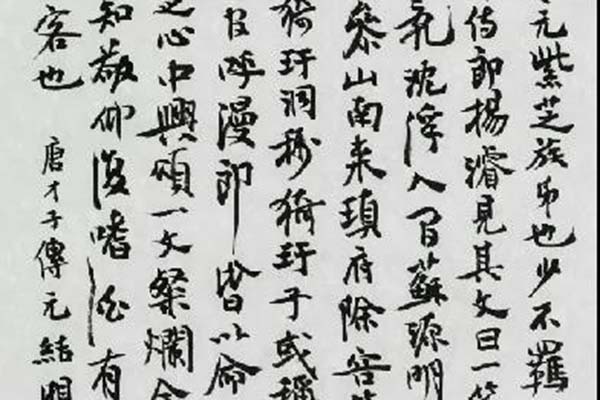 元紫芝族弟也少不羈
侍郎楊濬見其文曰一第
亂沈浮人間蘇源明
參山南來瑱府除容
猗玗洞稱猗玗子或稱
官呼漫郎皆以命
之心中興頌一文粲爛金
知敬仰復嗜酒有
客也 唐才子傳元結